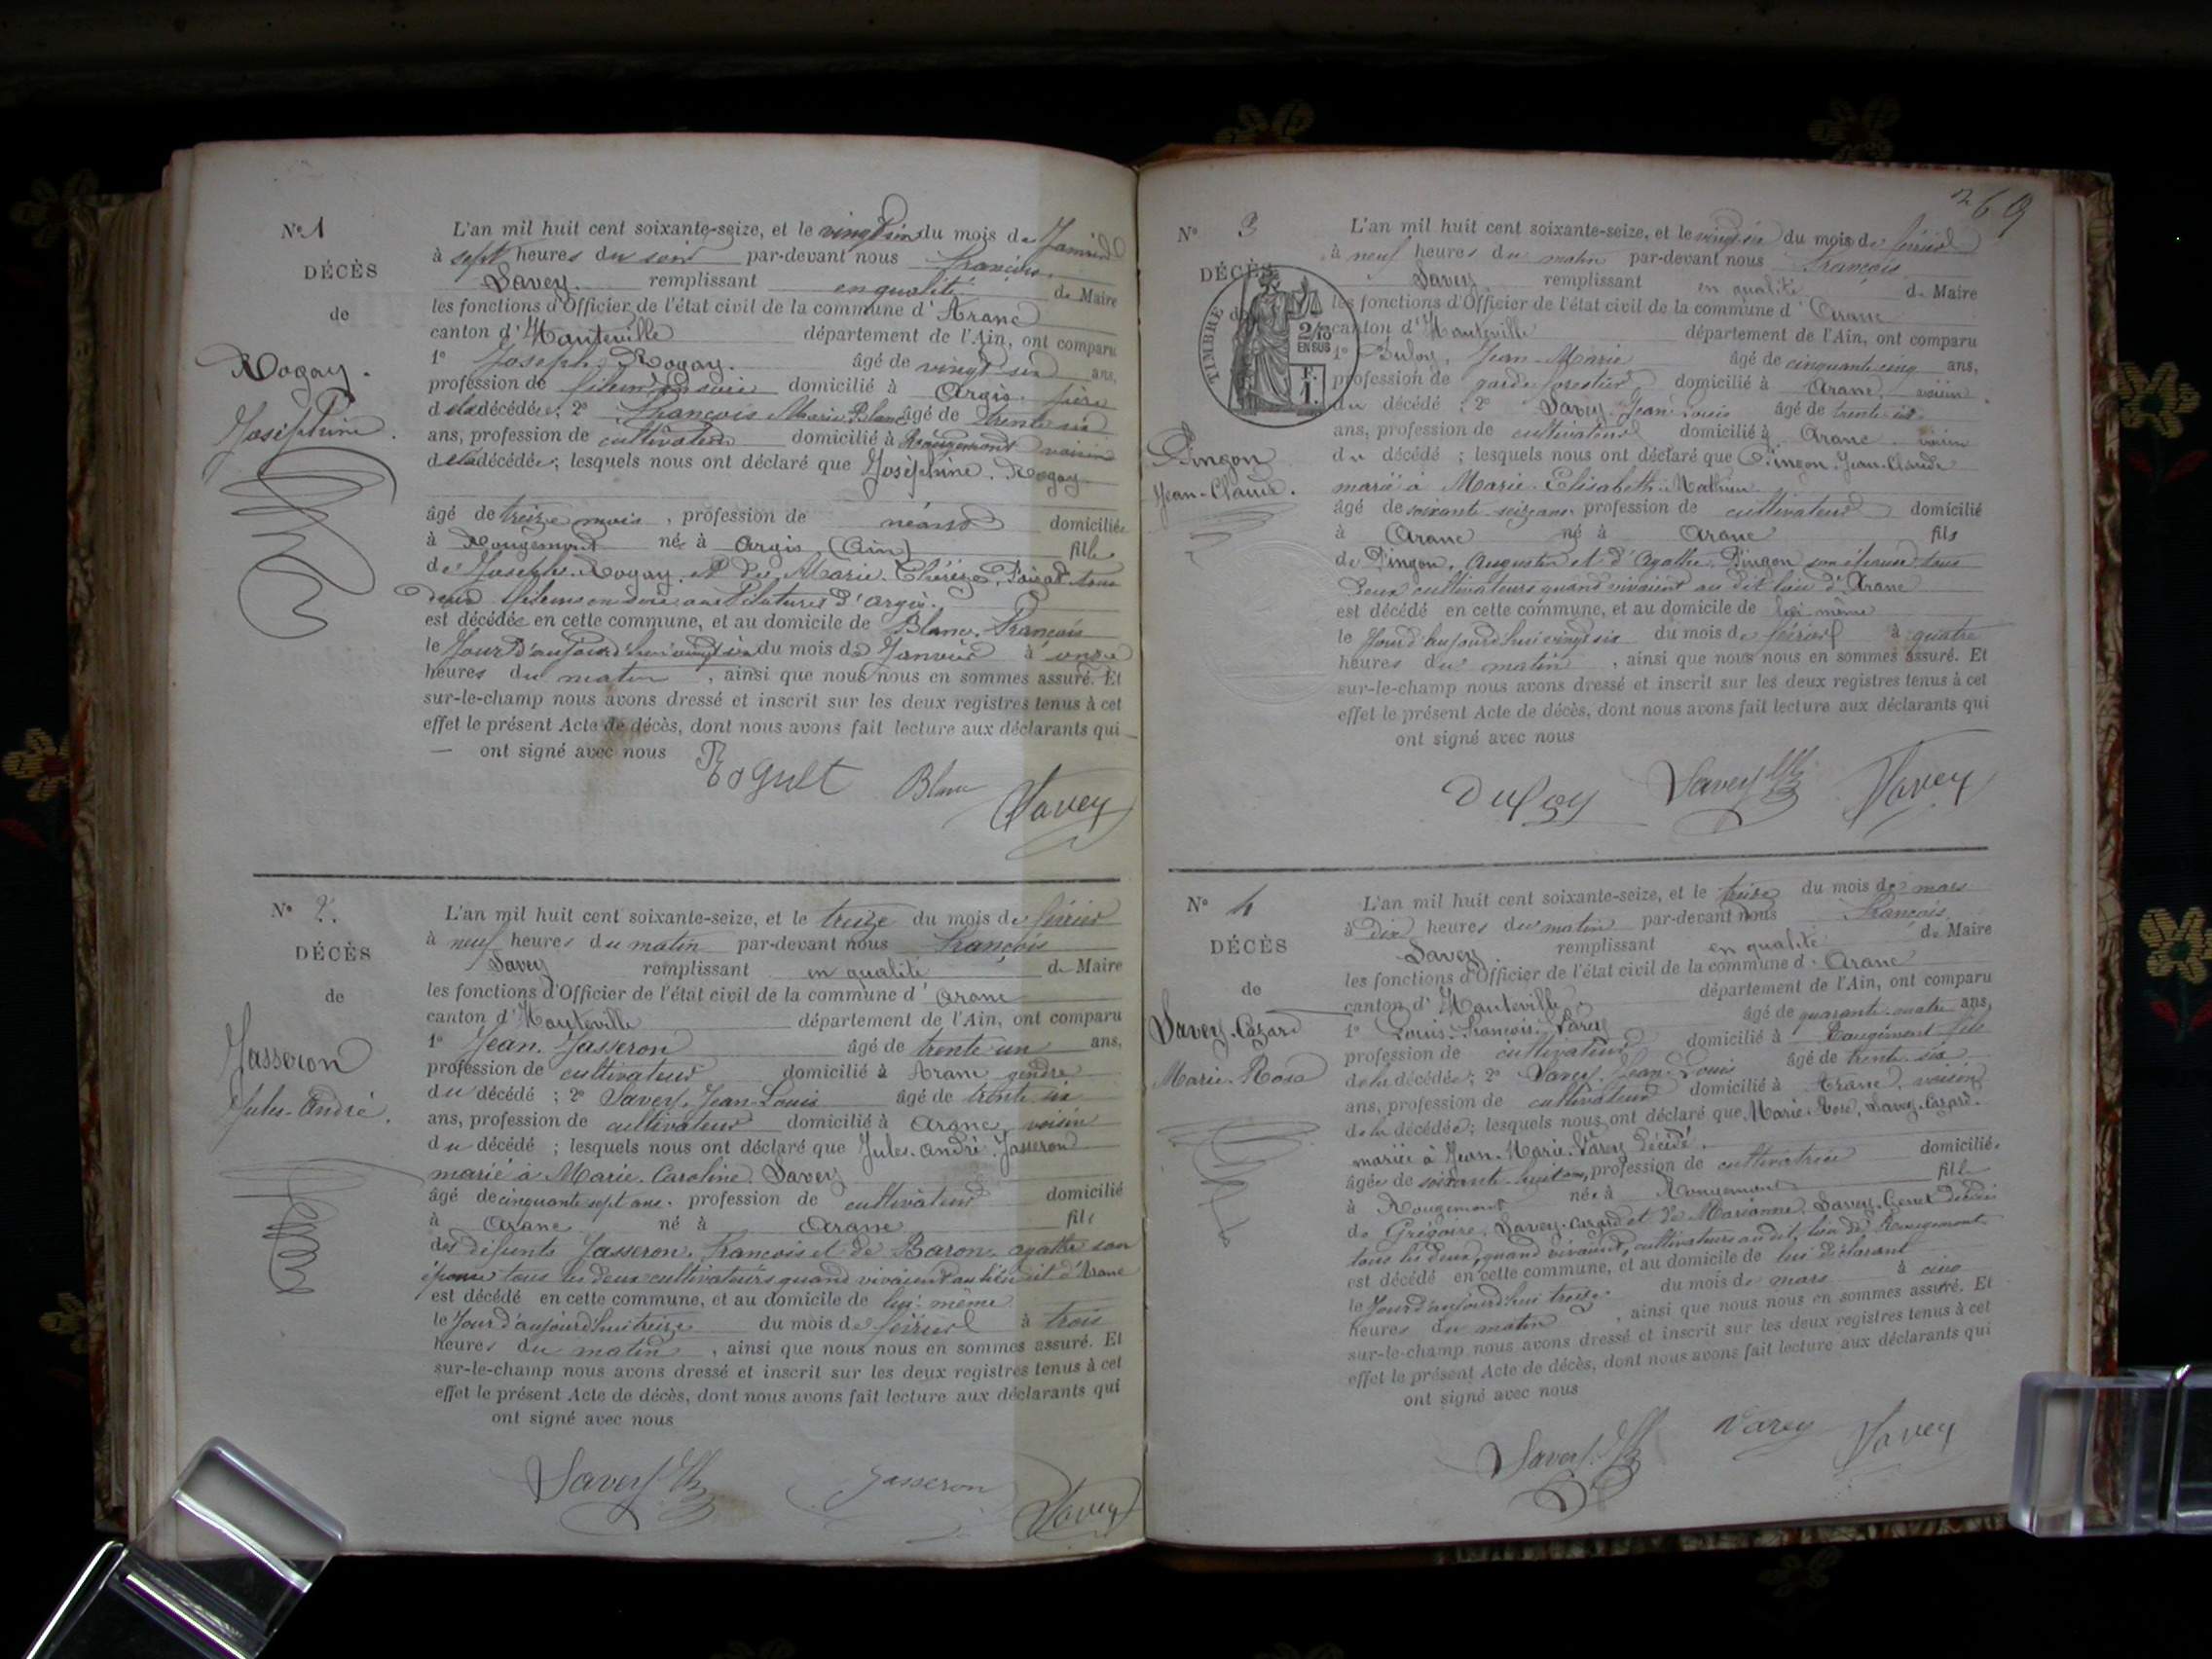 N° 1
DÉCÈS
de
Rogay.
Joséphine.
L'an mil huit cent soixante-seize, et le du mois de Janvier
à sept heures du soir par-devant nous François
Savey. remplissant en qualité de Maire
les fonctions d'Officier de l'état civil de la commune d' Aranc
canton d' Hauteville département de l'Ain, ont comparu
1° Joseph Rogay. âgé de vingt ans,
profession de domicilié à Argis. père
de la décédée; 2° François Marie Blanc âgé de trente six
ans, profession de cultivateur domicilié à Rougemont voisin
de la décédée; lesquels nous ont déclaré que Joséphine. Rogay
âgé de treize mois, profession de néant domiciliée
à Rougemont né à Argis (Ain) fille
de Joseph. Rogay, et de Marie. Thérèze, tous
deux fileurs en soie aux filatures d'argis.
est décédée en cette commune, et au domicile de Blanc. François
le Jour d'aujourd'hui du mois de Janvier à onze
heures du matin, ainsi que nous nous en sommes assuré. Et
sur-le-champ nous avons dressé et inscrit sur les deux registres tenus à cet
effet le présent Acte de décès, dont nous avons fait lecture aux déclarants qui
— ont signé avec nous
Blanc Savey
N° 2.
DÉCÈS
de
Jasseron
Jules-André.
L'an mil huit cent soixante-seize, et le treize du mois de février
à neuf heures du matin par-devant nous François
Savey remplissant en qualité de Maire
les fonctions d'Officier de l'état civil de la commune d' Aranc
canton d' Hauteville département de l'Ain, ont comparu
1° Jean. Jasseron âgé de trente un ans,
profession de cultivateur domicilié à Aranc gendre
du décédé; 2° Savey. Jean-Louis âgé de trente six
ans, profession de cultivateur domicilié à Aranc, voisin
du décédé; lesquels nous ont déclaré que Jules. André. Jasseron
marié à Marie. Caroline. Savey
âgé de cinquante sept ans. profession de cultivateur domicilié
à Aranc né à Aranc fils
des défunts Jasseron. François et de Baron. agathe son
épouse tous les deux cultivateurs quand vivaient au lieu dit d'Aranc
est décédé en cette commune, et au domicile de lui-même
le Jour d'aujourd'hui treize du mois de février à trois
heures du matin, ainsi que nous nous en sommes assuré. Et
sur-le-champ nous avons dressé et inscrit sur les deux registres tenus à cet
effet le présent Acte de décès, dont nous avons fait lecture aux déclarants qui
ont signé avec nous
Savey Jasseron Savey
269
N° 3
DÉCÈS
TIMBRE
2/10
EN SUS
F.
1.
Pingon
Jean-Claude.
L'an mil huit cent soixante-seize, et le vingt six du mois de février
à neuf heures du matin par-devant nous François
Savey remplissant en qualité de Maire
les fonctions d'Officier de l'état civil de la commune d' Aranc
canton d' Hauteville département de l'Ain, ont comparu
1° Jean-Marie âgé de cinquante cinq ans,
profession de garde forestier domicilié à Aranc, voisin
du décédé; 2° Savey. Jean-Louis âgé de trente six
ans, profession de cultivateur domicilié à Aranc voisin
du décédé; lesquels nous ont déclaré que Pingon. Jean-Claude
marié à Marie. Elisabeth. Mathieu
âgé de soixante-seize ans. profession de cultivateur domicilié
à Aranc né à Aranc fils
de Pingon. Augustin et d'Agathe. Pingon son épouse tous
deux cultivateurs quand vivaient au dit lieu d'Aranc
est décédé en cette commune, et au domicile de lui-même
le Jour d'aujourd'hui vingt six du mois de février à quatre
heures du matin, ainsi que nous nous en sommes assuré. Et
sur-le-champ nous avons dressé et inscrit sur les deux registres tenus à cet
effet le présent Acte de décès, dont nous avons fait lecture aux déclarants qui
ont signé avec nous
Savey Savey
N° 4
DÉCÈS
de
Savey-Cazard
Marie-Rose
L'an mil huit cent soixante-seize, et le treize du mois de mars
à Dix heures du matin par-devant nous François
Savey remplissant en qualité de Maire
les fonctions d'Officier de l'état civil de la commune d' Aranc
canton d' Hauteville département de l'Ain, ont comparu
1° Louis. François. Varey âgé de quarante-quatre ans,
profession de cultivateur domicilié à Rougemont fils
de la décédée; 2° Savey. Jean-Louis âgé de trente six
ans, profession de cultivateur domicilié à Aranc, voisin
de la décédée; lesquels nous ont déclaré que Marie. Rose, Savey-Cazard.
mariée à Jean. Marie. Varey décédé.
âgée de soixante-huit ans, profession de cultivatrice domiciliée
à Rougemont née à Rougemont fille
de Grégoire, Savey-Cazard et de Marianne. Savey-Genet décédés
tous les deux, quand vivaient, cultivateurs au dit lieu de Rougemont
est décédé en cette commune, et au domicile de lui déclarant
le Jour d'aujourd'hui treize du mois de mars à cinq
heures du matin, ainsi que nous nous en sommes assuré. Et
sur-le-champ nous avons dressé et inscrit sur les deux registres tenus à cet
effet le présent Acte de décès, dont nous avons fait lecture aux déclarants qui
ont signé avec nous
Savey Varey Savey